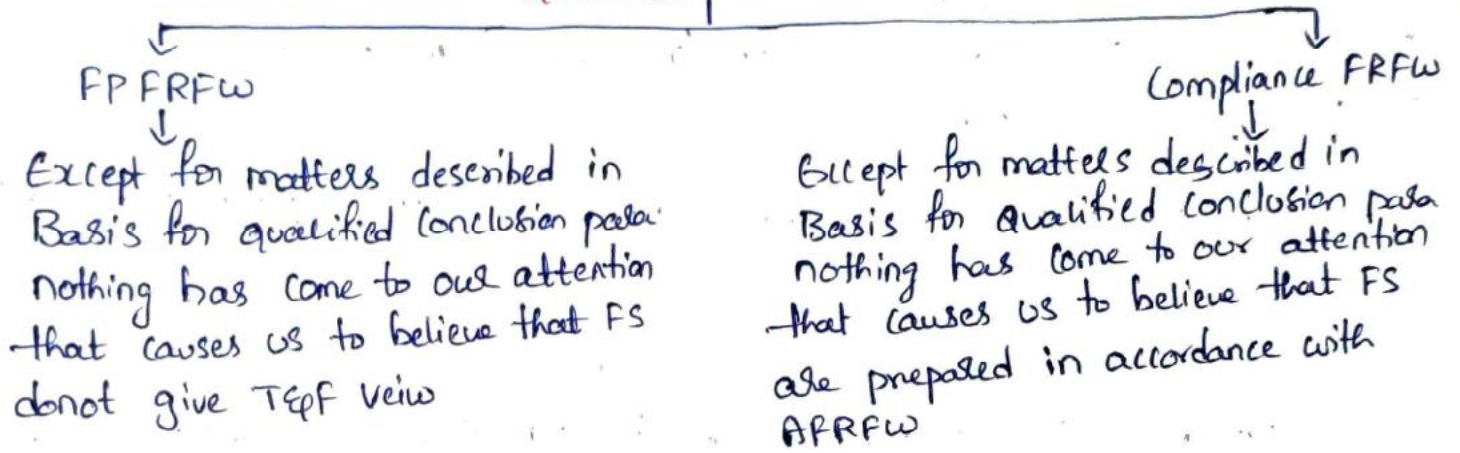 FP FRFW
Except for matters described in
Basis for qualified conclusion para
nothing has come to our attention
that causes us to believe that FS
donot give T&F veiw
Compliance FRFW
Except for matters described in
Basis for Qualified conclusion para
nothing has come to our attention
that causes us to believe that FS
are prepared in accordance with
AFRFW